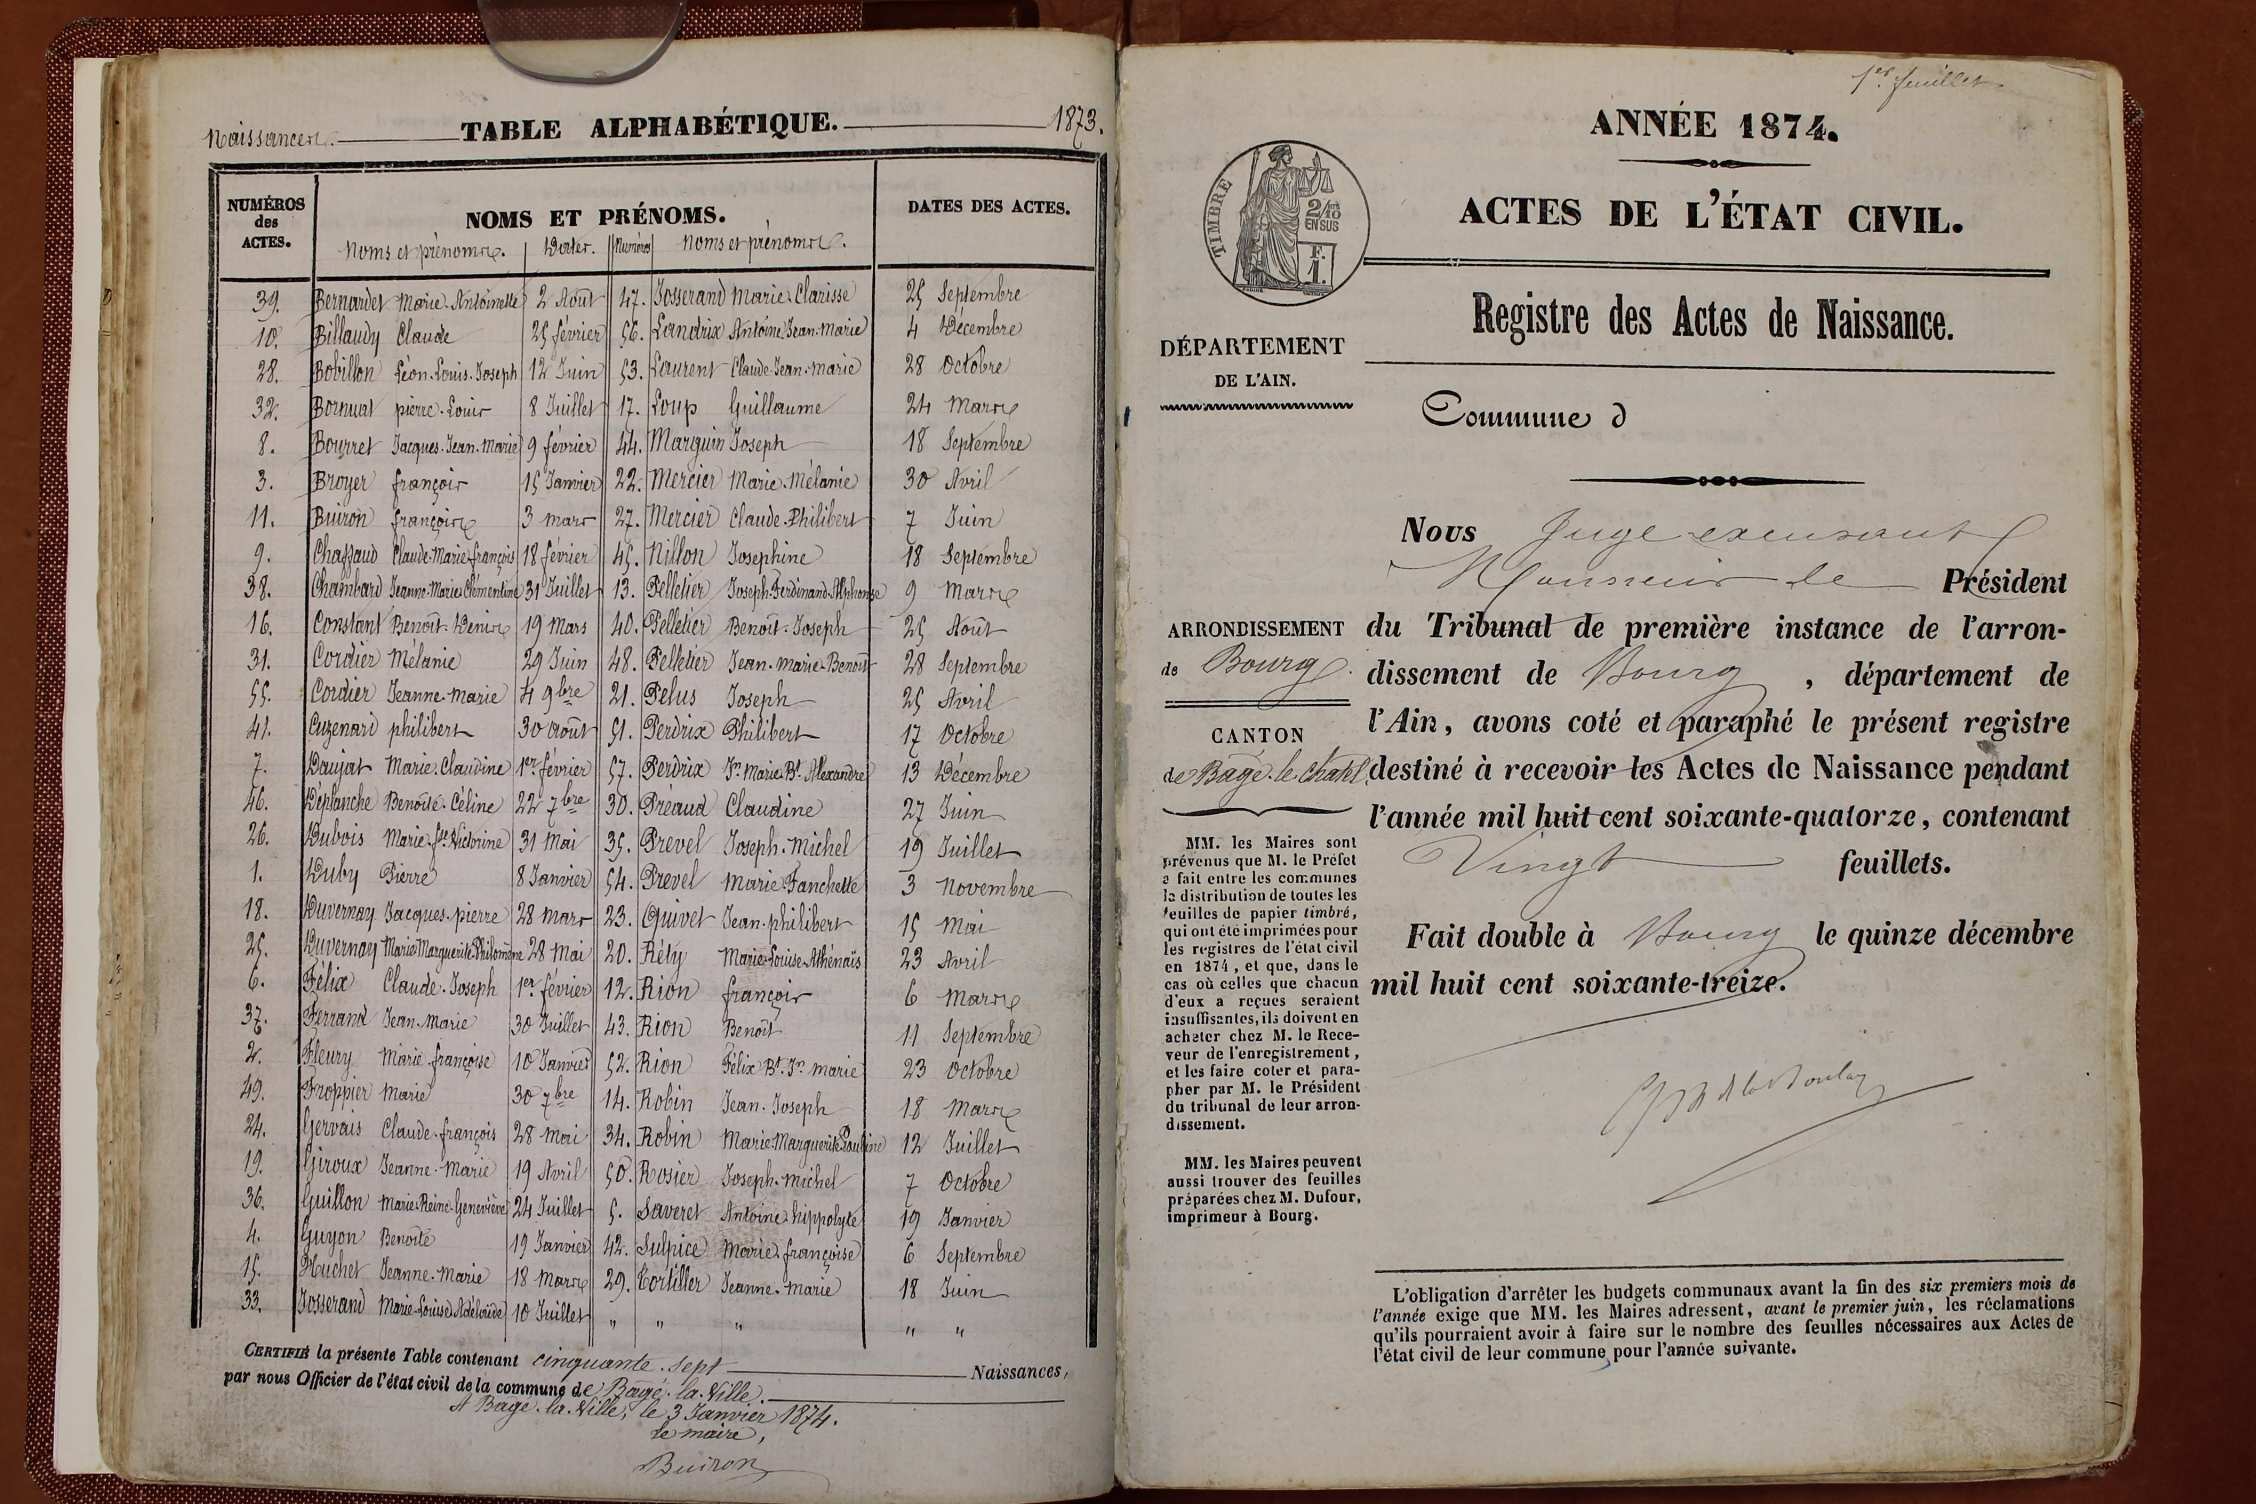 Naissances. TABLE ALPHABÉTIQUE. 1873.
NUMÉROS des ACTES. NOMS ET PRÉNOMS. DATES DES ACTES.
Noms et prénoms. Dates. Numéros Noms et prénoms.
39. Bernardet Marie-Antoinette 2 Août 47. Josserand Marie-Clarisse 25 Septembre
10. Billaudy Claude 25 février 56. Landrix Antoine Jean-Marie 4 Décembre
28. Bobillon Léon-Louis-Joseph 12 Juin 53. Laurent Claude-Jean-Marie 28 Octobre
32. Bornuat pierre-Louis 8 Juillet 17. Loup Guillaume 24 Mars
8. Bourret Jacques-Jean-Marie 9 février 44. Marguin Joseph 18 Septembre
3. Broyer françois 15 Janvier 22. Mercier Marie-Mélanie 30 Avril
11. Buiron françois 3 mars 27. Mercier Claude-Philibert 7 Juin
9. Chaffaud Claude-Marie-françois 18 février 45. Nillon Josephine 18 Septembre
38. Chambard Jeanne-Marie-Clémentine 31 Juillet 13. Pelletier Joseph-Ferdinand-Alphonse 9 Mars
16. Constant Benoît-Denis 19 Mars 40. Pelletier Benoît-Joseph 25 Août
31. Cordier Mélanie 29 Juin 48. Pelletier Jean-Marie-Benoît 28 Septembre
55. Cordier Jeanne-Marie 4 9bre 21. Pelus Joseph 25 Avril
41. Cuzenard philibert 30 août 51. Perdrix Philibert 17 Octobre
7. Daujat Marie-Claudine 1er février 57. Perdrix Jn Marie-Bt Alexandre 13 Décembre
46. Deplanche Benoîte-Céline 22 7bre 30. Préaud Claudine 27 Juin
26. Dubois Marie-fse Victorine 31 Mai 35. Prevel Joseph-Michel 19 Juillet
1. Duby Pierre 8 Janvier 54. Prevel Marie Fanchette 3 Novembre
18. Duvernay Jacques-pierre 28 mars 23. Quivet Jean-philibert 15 Mai
25. Duvernay Marie-Marguerite-Philomène 28 Mai 20. Réty Marie-Louise-Athénaïs 23 Avril
6. Félix Claude-Joseph 1er février 12. Rion françois 6 Mars
37. Ferrand Jean-Marie 30 Juillet 43. Rion Benoît 11 Septembre
2. Fleury Marie-françoise 10 Janvier 52. Rion Félix Bt Jn marie 23 Octobre
49. Froppier Marie 30 7bre 14. Robin Jean-Joseph 18 Mars
24. Gervais Claude-françois 28 mai 34. Robin Marie-Marguerite-Pauline 12 Juillet
19. Giroux Jeanne-Marie 19 Avril 50. Rosier Joseph-Michel 7 Octobre
36. Guillon Marie-Reine-Geneviève 24 Juillet 5. Saveret Antoine-hippolyte 19 Janvier
4. Guyon Benoîte 19 Janvier 42. Sulpice Marie-françoise 6 Septembre
15. Huchet Jeanne-Marie 18 Mars 29. Tortiller Jeanne-Marie 18 Juin
33. Josserand Marie-Louise Adélaïde 10 Juillet " " " " "
CERTIFIÉ la présente Table contenant cinquante-sept Naissances,
par nous Officier de l'état civil de la commune de Bâgé-la-Ville.
A Bâgé-la-Ville, le 3 Janvier 1874.
le maire,
Buiron
1er feuillet
ANNÉE 1874.
ACTES DE L'ÉTAT CIVIL.
TIMBRE
2/10 EN SUS
F. 1.
Registre des Actes de Naissance.
DÉPARTEMENT
DE L'AIN.
Commune d
Nous Juge excusant
Monsieur le Président
du Tribunal de première instance de l'arron-
dissement de Bourg, département de
l'Ain, avons coté et paraphé le présent registre
destiné à recevoir les Actes de Naissance pendant
l'année mil huit cent soixante-quatorze, contenant
Vingt feuillets.
Fait double à Bourg le quinze décembre
mil huit cent soixante-treize.
ARRONDISSEMENT
de Bourg.
CANTON
de Bâgé-le-Châtel.
MM. les Maires sont
prévenus que M. le Préfet
a fait entre les communes
la distribution de toutes les
feuilles de papier timbré,
qui ont été imprimées pour
les registres de l'état civil
en 1874, et que, dans le
cas où celles que chacun
d'eux a reçues seraient
insuffisantes, ils doivent en
acheter chez M. le Rece-
veur de l'enregistrement,
et les faire coter et para-
pher par M. le Président
du tribunal de leur arron-
dissement.
MM. les Maires peuvent
aussi trouver des feuilles
préparées chez M. Dufour,
imprimeur à Bourg.
L'obligation d'arrêter les budgets communaux avant la fin des six premiers mois de
l'année exige que MM. les Maires adressent, avant le premier juin, les réclamations
qu'ils pourraient avoir à faire sur le nombre des feuilles nécessaires aux Actes de
l'état civil de leur commune pour l'année suivante.